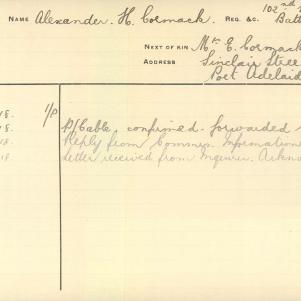 NAME Alexander. H. Cormack. REG. &C. 102nd
Batt
NEXT OF KIN Mr E. Cormack
ADDRESS Sinclair Stree
Port Adelaid
18. 1/P
18. P/Cable, confirmed. forwarded
18. Reply from Commn. Information
18. Letter received from Inquirer. Ackno